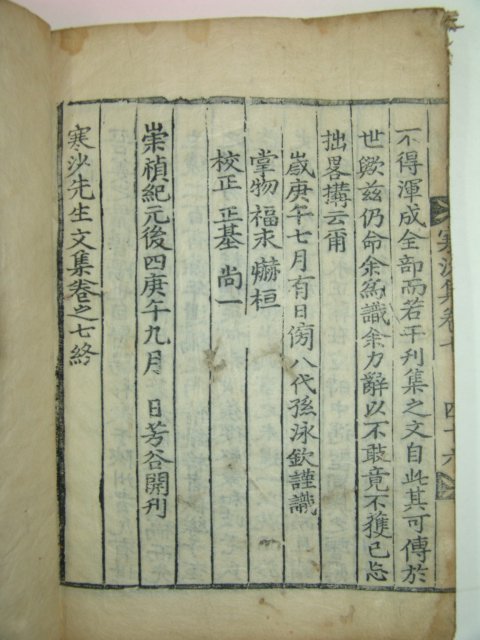 不得渾成全部而若干刊集之文自此其可傳於
世歟玆仍命余爲識余力辭以不敢竟不獲已忘
拙畧搆云爾
歲庚午七月有日傍八代孫泳欽謹識
掌物 福永 爀桓
校正 正基 尚一
崇禎紀元後四庚午九月 日芳谷開刋
寒沙先生文集卷之七終
寒沙集卷七
四十六